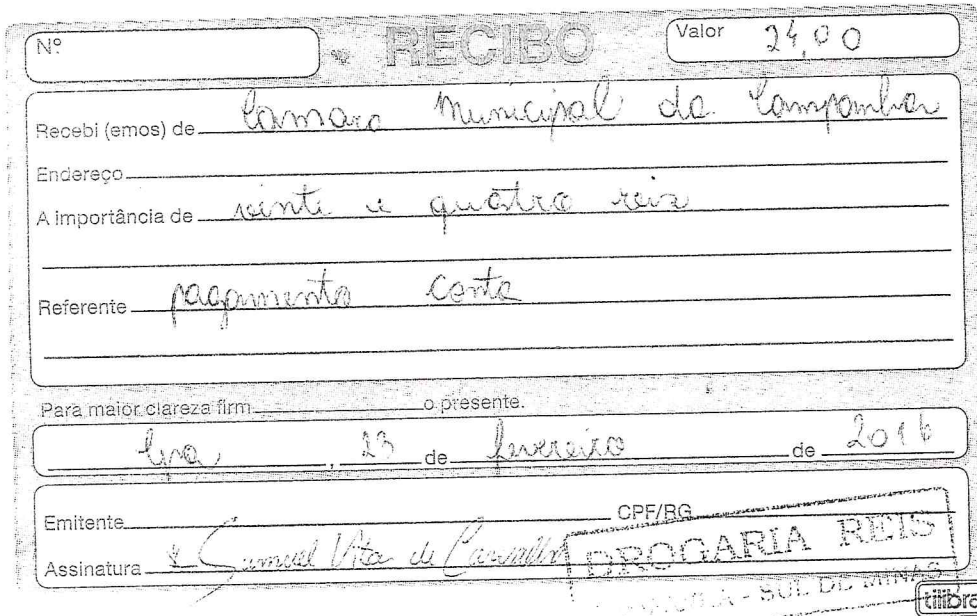 Nº
RECIBO
Valor 24,00
Recebi (emos) de Camara Municipal da Campanha
Endereço
A importância de vinte e quatro reis
Referente pagamento conta
Para maior clareza firm o presente.
Cpa, 23 de fevereiro de 2016
Emitente CPF/RG
Assinatura Samuel Vitor de Carvalho
DROGARIA REIS
- SUL DE MINAS
tilibra